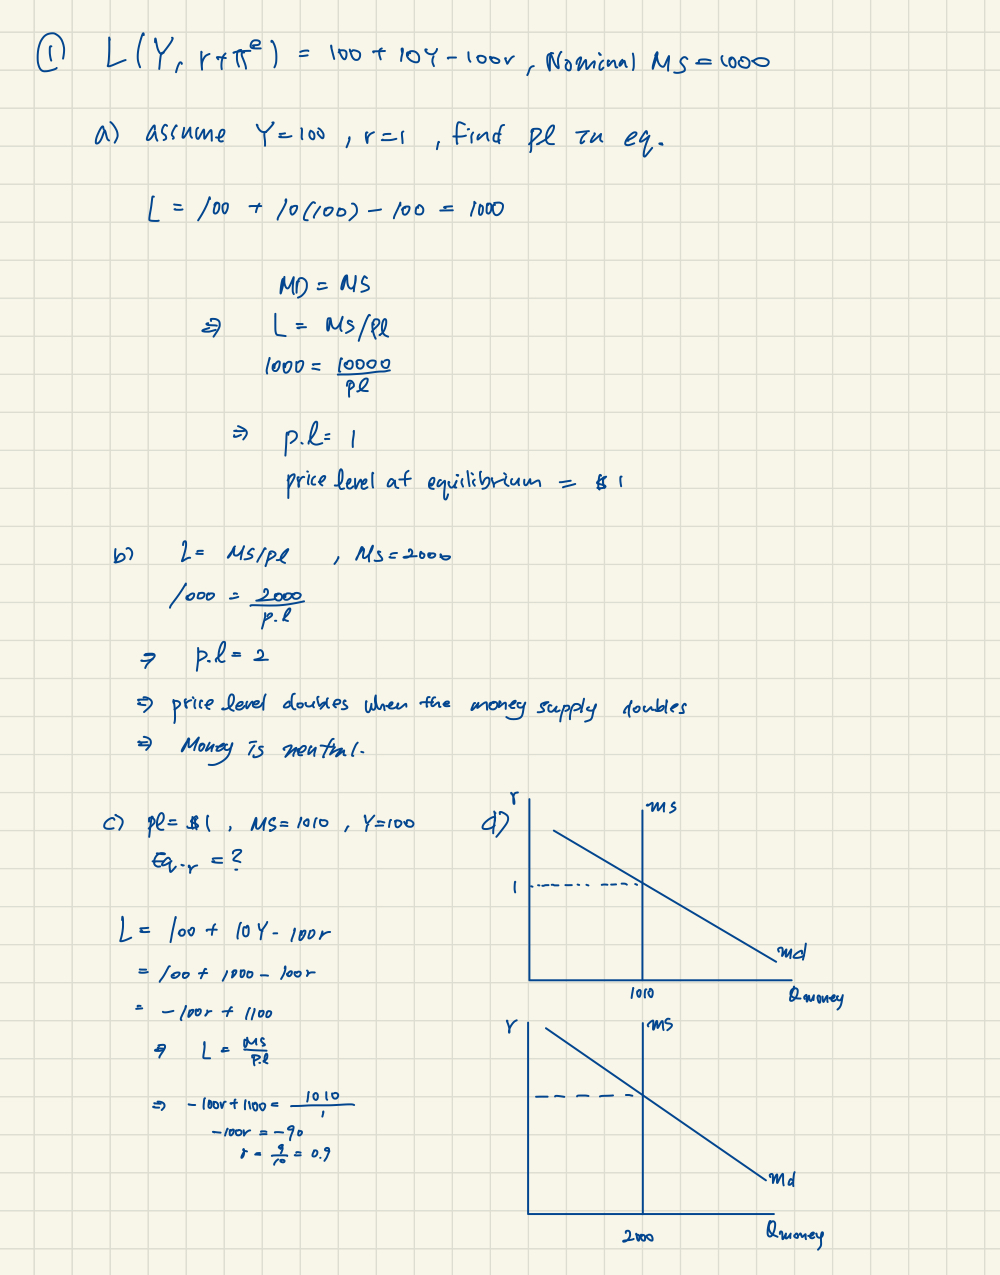 ① L(Y, r+π^e) = 100 + 10Y - 100r, Nominal MS = 1000
a) assume Y = 100, r = 1, find Pl in eq.
L = 100 + 10(100) - 100 = 1000
MD = MS
⇒ L = MS/Pl
1000 = 10000/Pl
⇒ p.l = 1
price level at equilibrium = $1
b) L = MS/Pl, MS = 2000
1000 = 2000/p.l
⇒ p.l = 2
⇒ price level doubles when the money supply doubles
⇒ Money is neutral.
c) Pl = $1, MS = 1010, Y = 100
Eq. r = ?
L = 100 + 10Y - 100r
= 100 + 1000 - 100r
= -100r + 1100
⇒ L = MS/P.l
⇒ -100r + 1100 = 1010/1
-100r = -90
r = 9/10 = 0.9
d)
r
MS
1
Md
1010
Qmoney
r
MS
Md
2000
Qmoney